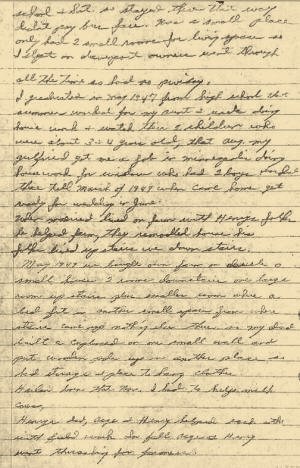 school & Sat. so stayed there that way
didn't pay bus fare. Was a small place
only had 2 small rooms for living space so
I slept on davenport owners went through
all the time so had no privacy.
I graduated in May 1947 from high school that
summer worked for my aunt 2 weeks doing
house work & watched their 2 children who
were about 3 & 4 years old, that Aug. my
girlfriend got me a job in doing
housework for widow who had 2 boys worked
there till March of 1949 when came home get
ready for wedding in June.
When married lived on farm with Henry folks
he helped farm, they remodled house his
folks lived up stairs we down stairs.
May 1949 we bought own farm on
small house 2 rooms downstairs one large
room up stairs plus smaller room where a
bed fit in another small space from where
stairs came up nothing else there so my dad
built a cupboard on one small wall and
put wooden rode up in another place so
had storage & place to hang clothes.
born that Nov. I had to help milk
cows,
Henrys dad, & Henry helped each other
with field work. In fall & Henry
went thrashing for farmers.